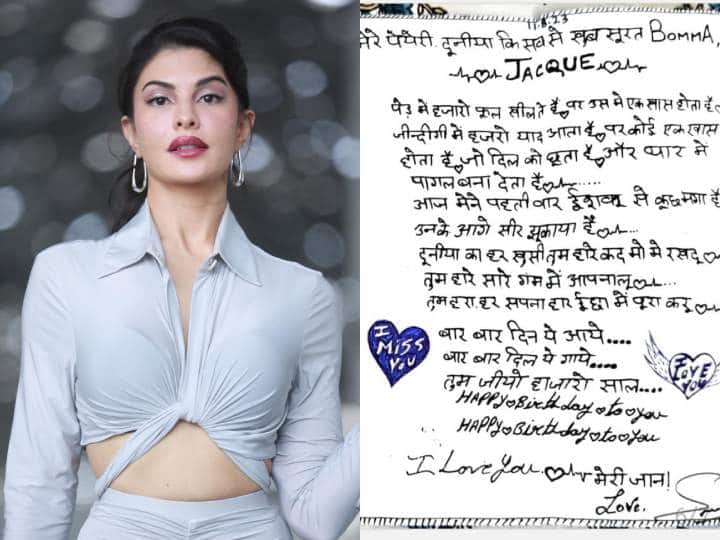 11.8.23
मेरे पेयेरी. दूनीया कि सब से खुब सूरत BOMMA,
JACQUE
पेड़ मे हजारो फूल खीलते है पर उस मे एक खास होता है
जीन्दीगी मे हजरो याद आता है पर कोई एक खास
होता है जो दिल को छूता है और प्यार मे
पागल बना देता है......
आज मेने पहली वार ईशवर से कूछ मगा है
उनके आगे सीर झूकाया है...
दूनीया का हर खुसी तुम हारे कद मो मे रखदू
तुम हारे सारे गम में आपनालू...
तुम हरा हर सपना हार ईछा में पूरा करू
I MISS YOU
बार बार दिन ये आये....
बार बार दिल ये गाये....
I LOVE YOU
तुम जीयो हाजारो साल....
HAPPY Birthday to you
HAPPY Birthday to you
I Love You मेरी जान!
Love.